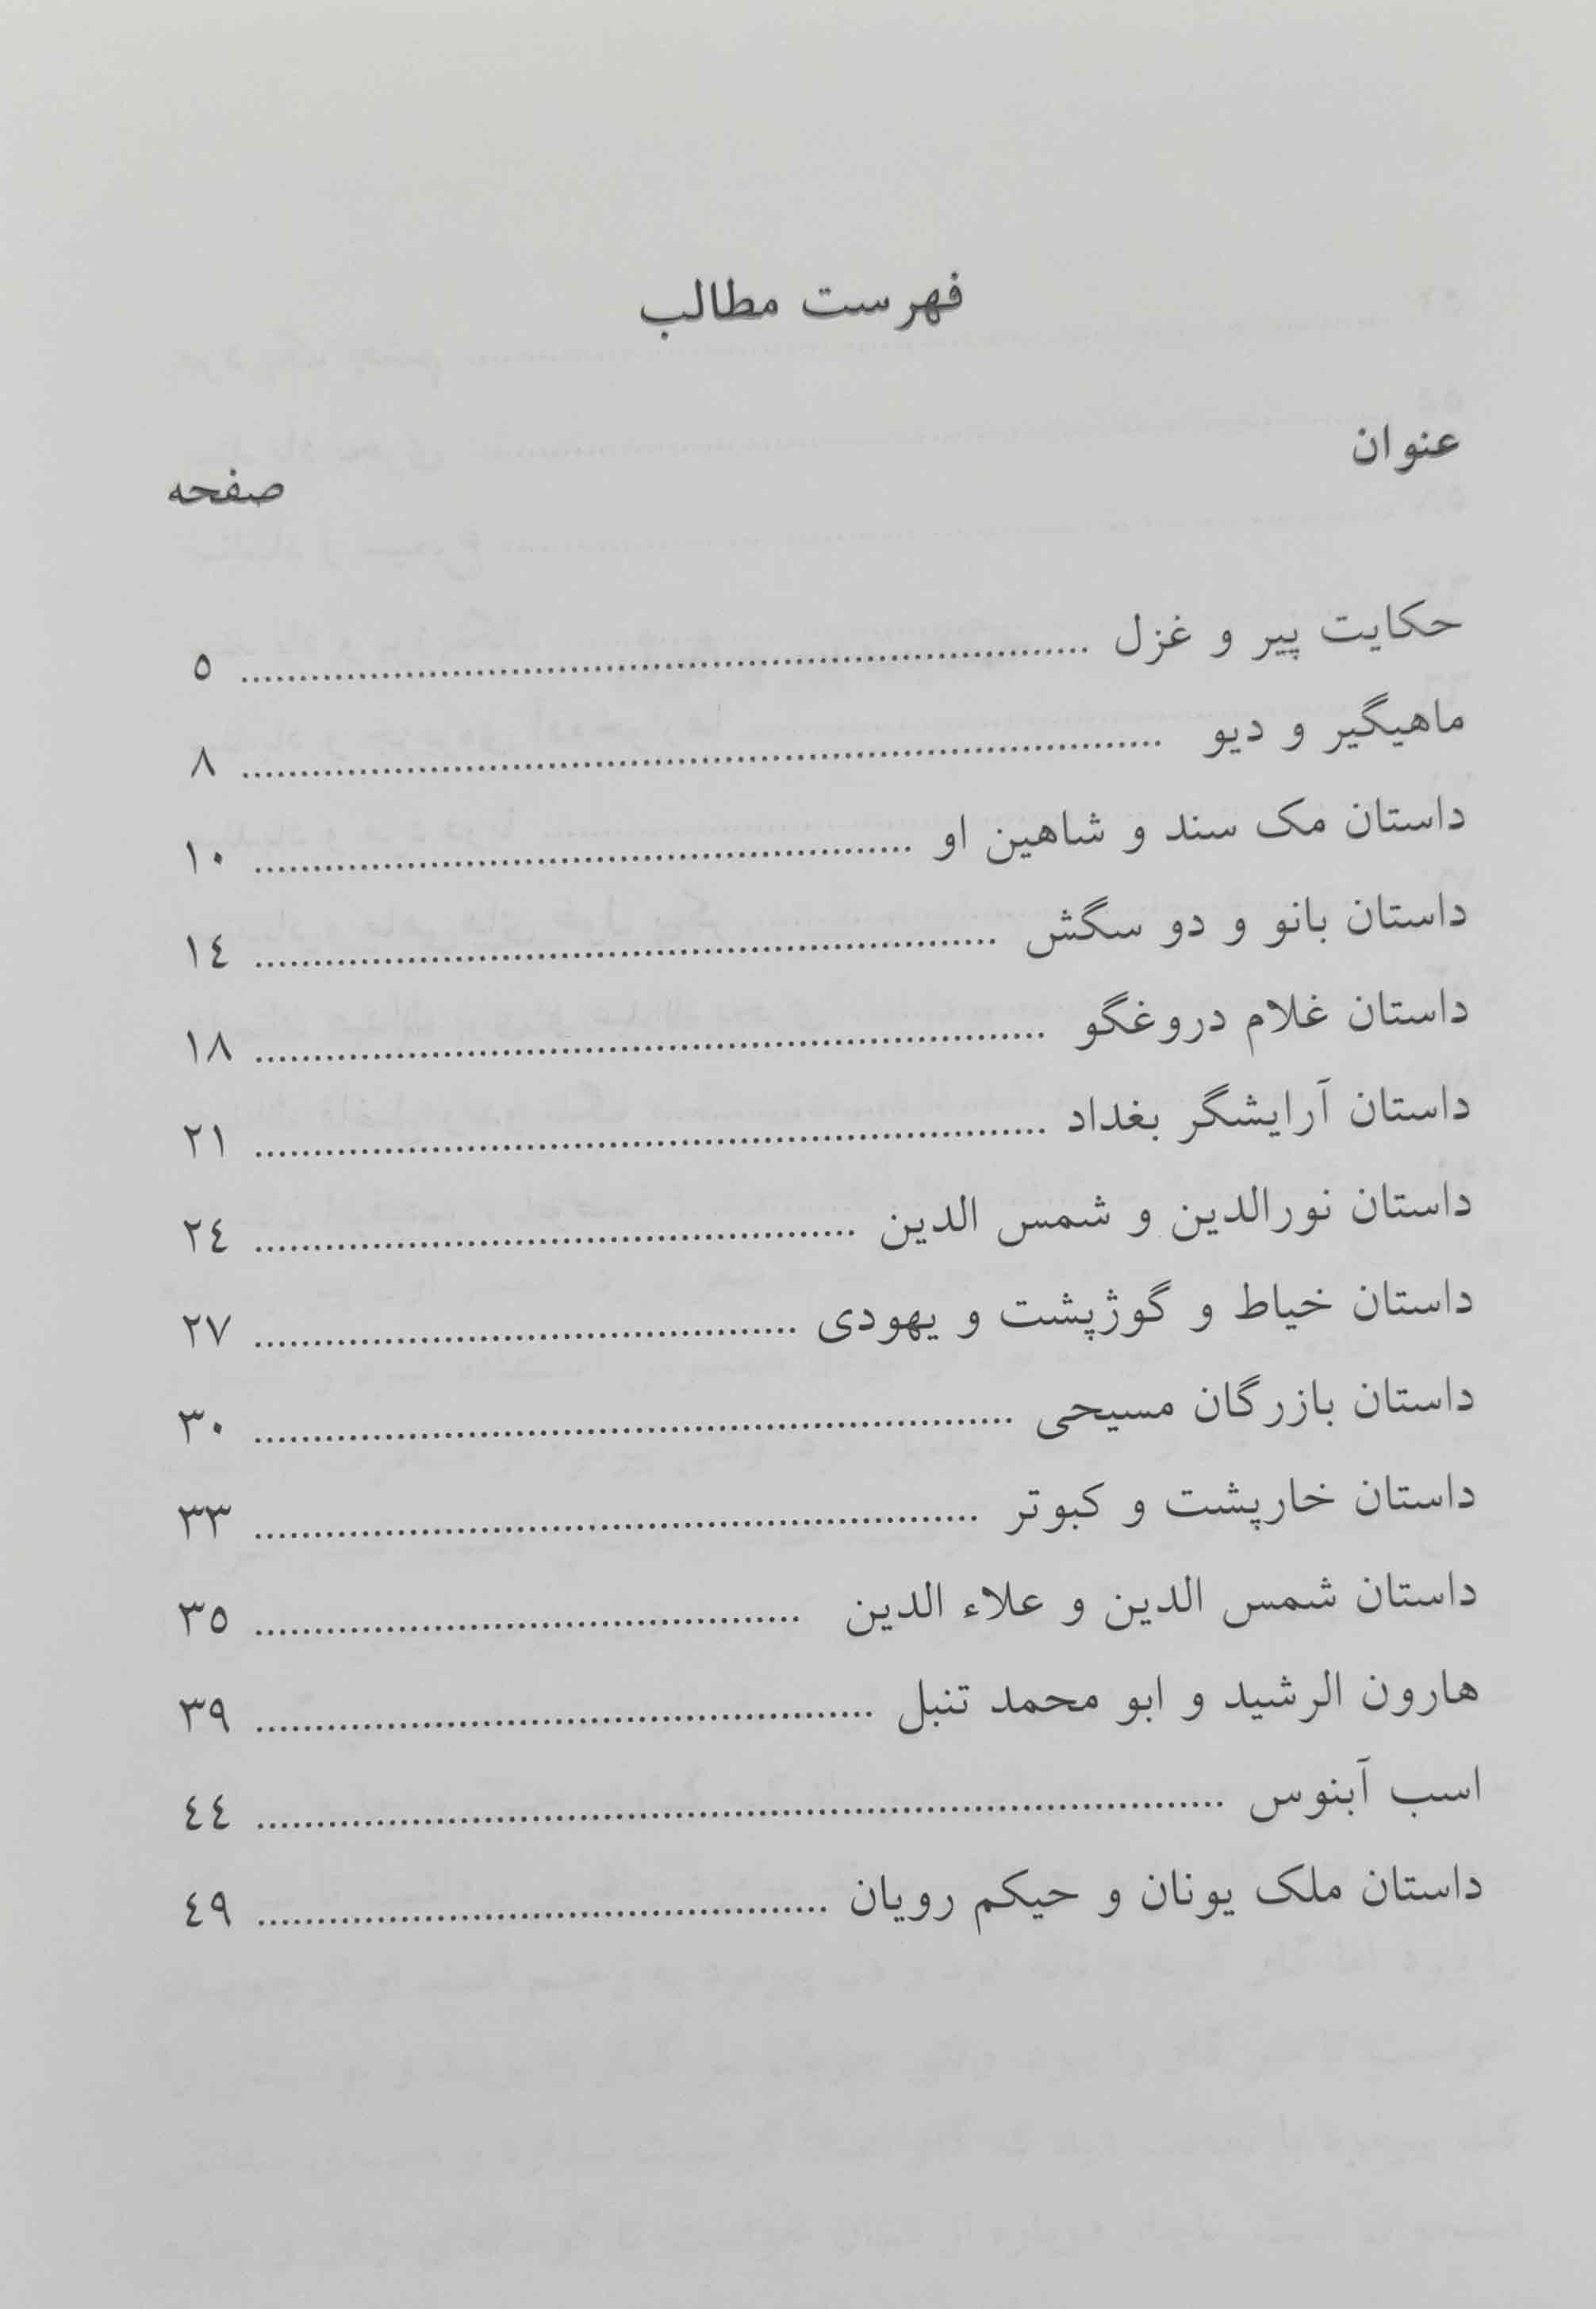 فهرست مطالب
عنوان
صفحه
حکایت پیر و غزل ........................................ ٥
ماهیگیر و دیو ........................................ ٨
داستان مک سند و شاهین او ........................................ ١٠
داستان بانو و دو سگش ........................................ ١٤
داستان غلام دروغگو ........................................ ١٨
داستان آرایشگر بغداد ........................................ ٢١
داستان نورالدین و شمس الدین ........................................ ٢٤
داستان خیاط و گوژپشت و یهودی ........................................ ٢٧
داستان بازرگان مسیحی ........................................ ٣٠
داستان خارپشت و کبوتر ........................................ ٣٣
داستان شمس الدین و علاء الدین ........................................ ٣٥
هارون الرشید و ابو محمد تنبل ........................................ ٣٩
اسب آبنوس ........................................ ٤٤
داستان ملک یونان و حیکم رویان ........................................ ٤٩